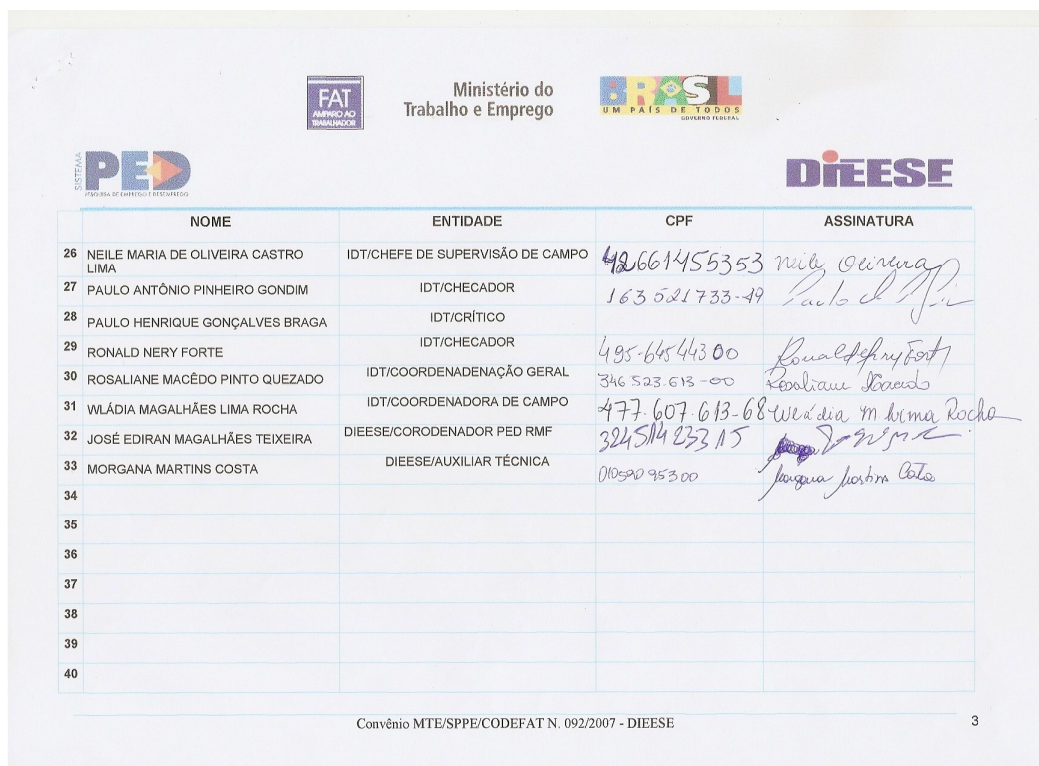 FAT
AMPARO AO
TRABALHADOR
Ministério do
Trabalho e Emprego
BRASIL
UM PAÍS DE TODOS
GOVERNO FEDERAL
SISTEMA
PED
PESQUISA DE EMPREGO E DESEMPREGO
DIEESE
NOME ENTIDADE CPF ASSINATURA
26 NEILE MARIA DE OLIVEIRA CASTRO LIMA IDT/CHEFE DE SUPERVISÃO DE CAMPO 42661455353 Neile Oliveira
27 PAULO ANTÔNIO PINHEIRO GONDIM IDT/CHECADOR 163521733-49 Paulo
28 PAULO HENRIQUE GONÇALVES BRAGA IDT/CRÍTICO
29 RONALD NERY FORTE IDT/CHECADOR 495-64544300 Ronald Nery Forte
30 ROSALIANE MACÊDO PINTO QUEZADO IDT/COORDENADENAÇÃO GERAL 346523.613-00 Rosaliane Macêdo
31 WLÁDIA MAGALHÃES LIMA ROCHA IDT/COORDENADORA DE CAMPO 477.607.613-68 Wládia M Lima Rocha
32 JOSÉ EDIRAN MAGALHÃES TEIXEIRA DIEESE/CORODENADOR PED RMF 32451423315
33 MORGANA MARTINS COSTA DIEESE/AUXILIAR TÉCNICA 01059095300 Morgana Martins Costa
34
35
36
37
38
39
40
Convênio MTE/SPPE/CODEFAT N. 092/2007 - DIEESE
3